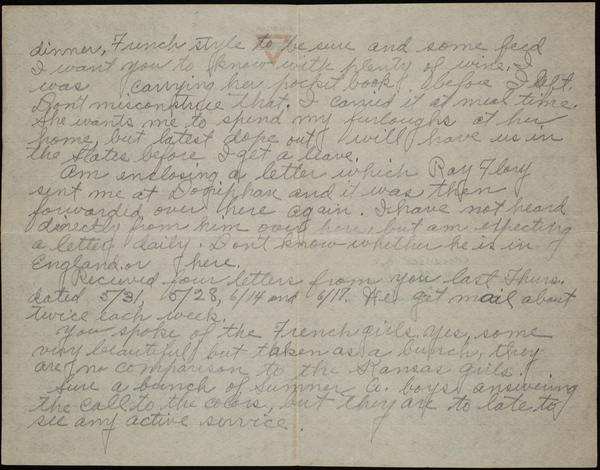 dinner, French style to be sure and some feed
I want you to know with plenty of wine, I
was carrying her pocket book before I left.
Dont misconstrue that. I carried it at mess time.
She wants me to spend my furloughs at her
home, but latest dope out will have us in
the States before I get a leave.
Am enclosing a letter which Ray Flory
sent me at Doniphan and it was then
forwarded over here again. I have not heard
directly from him over here, but am expecting
a letter daily. Dont know whether he is in
England or here.
Recieved four letters from you last Thurs.
dated 5/31, 5/28, 6/14 and 6/17. We get mail about
twice each week.
You spoke of the French girls. Yes, some
very beautiful but taken as a bunch, they
are no comparison to the Kansas girls.
Sure a bunch of Sumner Co. boys answering
the call to the colors, but they are to late to
see any active service.